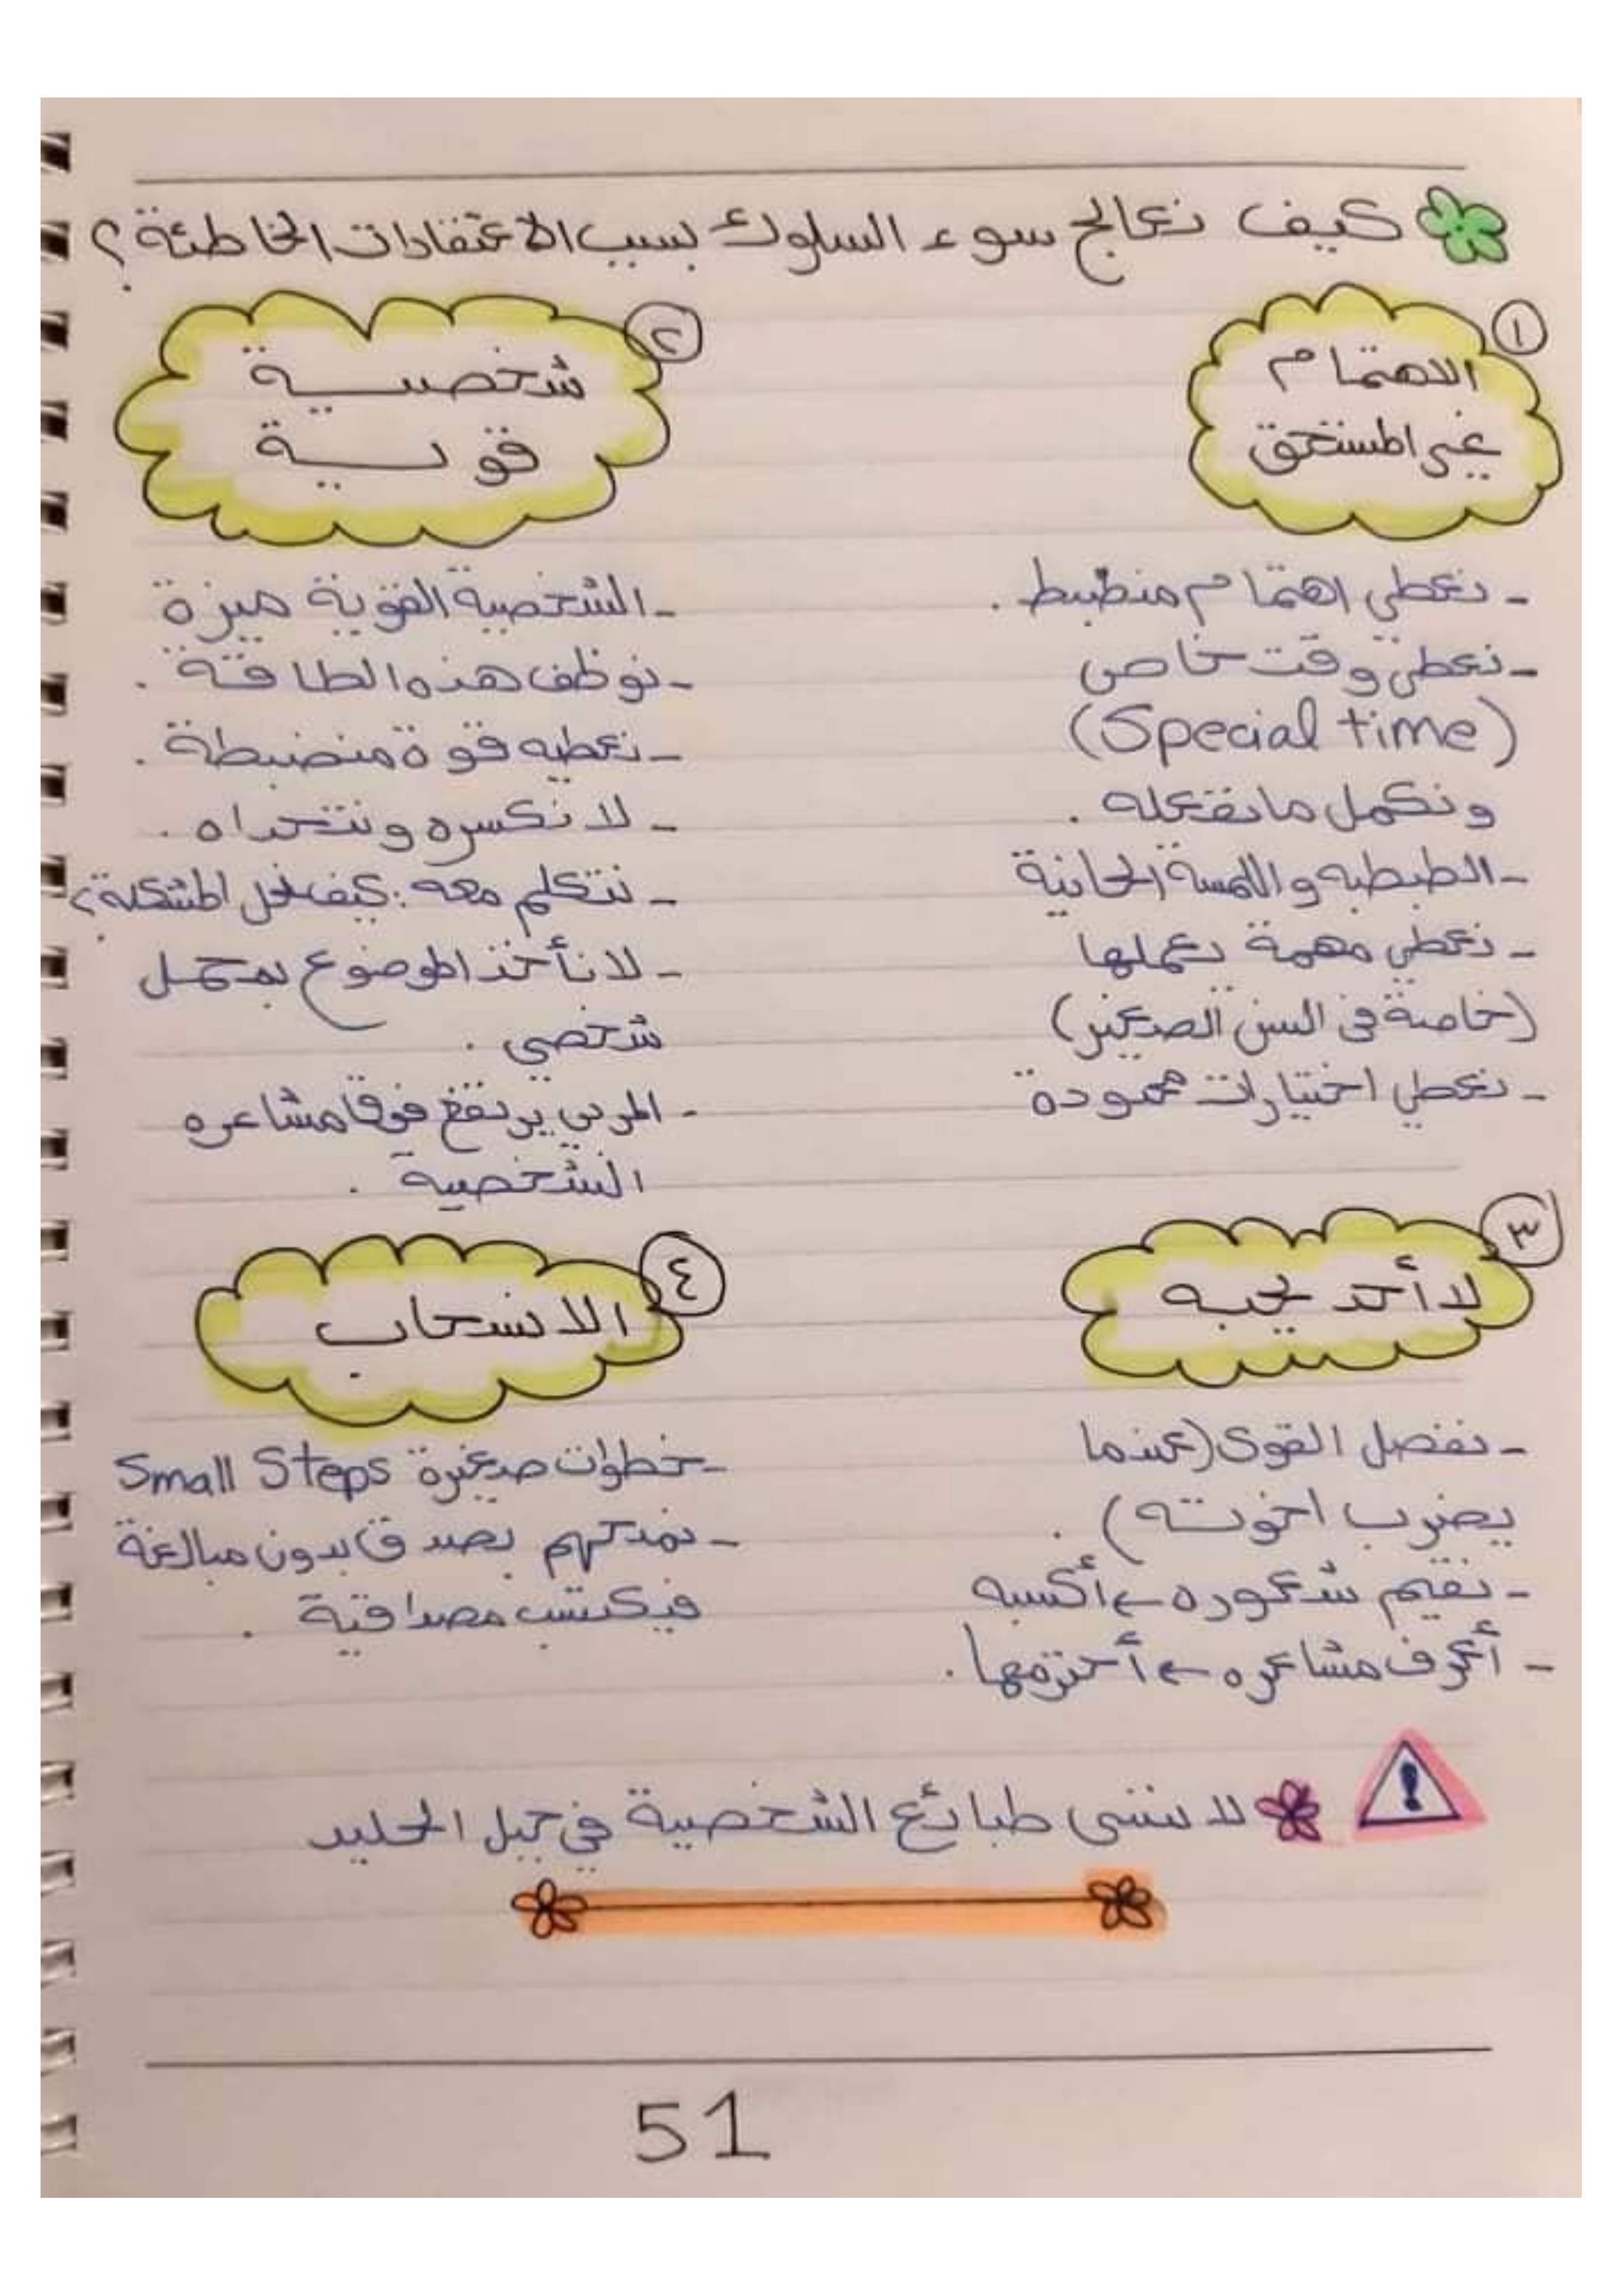 كيف نعالج سوء السلوك بسبب الاعتقادات الخاطئة؟
١
الاهتمام
غير المستحق
- نعطي اهتمام منضبط.
- نعطي وقت خاص
(Special time)
ونكمل ما نفعله.
- الطبطبه واللمسة الحانية
- نعطي مهمة يعملها
(خاصة في السن الصغير)
- نعطي اختيارات محدودة
٢
شخصية
قوية
- الشخصية القوية ميزة
- نوظف هذه الطاقة.
- نعطيه قوة منضبطة.
- لا نكسره ونتحداه.
- نتكلم معه: كيف نحل المشكلة؟
- لا نأخذ الموضوع بمحمل
شخصي.
- المربي يرتفع فوق مشاعره
الشخصية.
٣
لا أحد يحبه
- نفصل القوى (عندما
يضرب اخوته).
- نقيم شعوره ← أكسبه
- أعرف مشاعره ← أحترمها.
٤
الانسحاب
- خطوات صغيرة Small Steps
- نمدحهم بصدق بدون مبالغة
فيكتسب مصداقية.
لا ننسى طبائع الشخصية في جبل الجليد
51